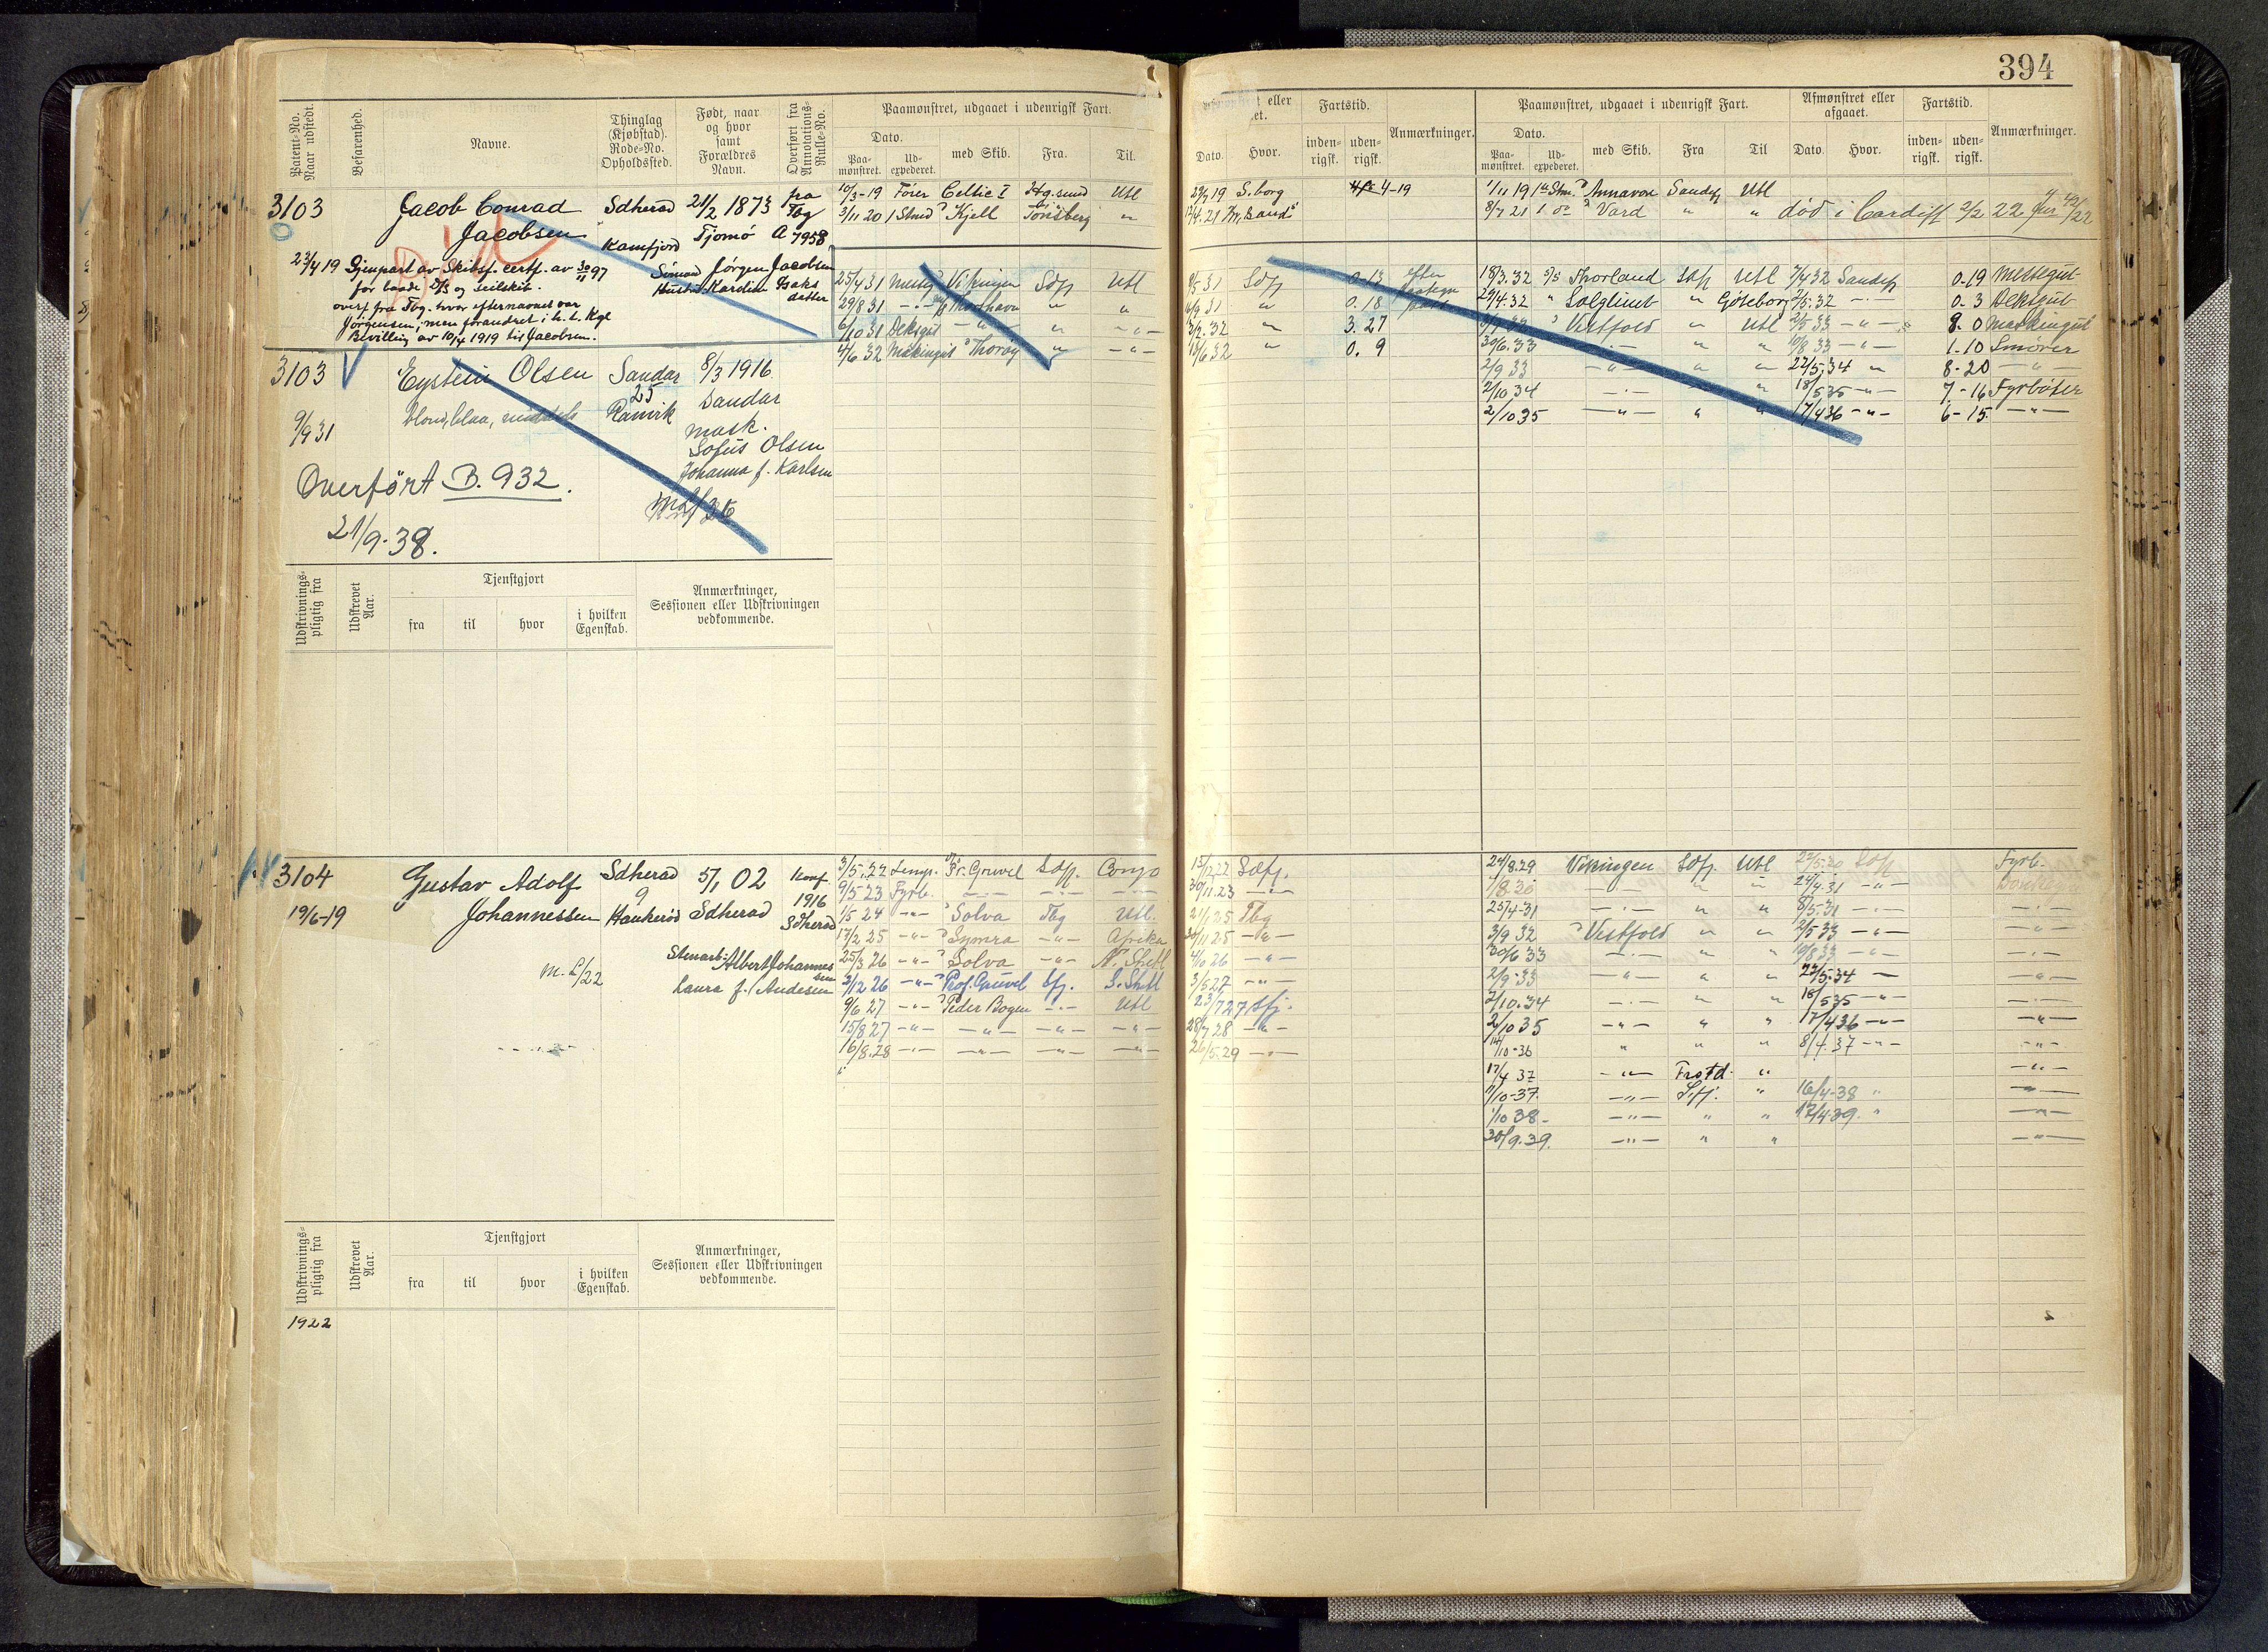 394
Patent-No. Naar udstedt.
Befarenhed.
Navne.
Thinglag (Kjøbstad). Rode-No. Opholdssted.
Født, naar og hvor samt Forældres Navn.
Overført fra Annotations-Rulle-No.
Paamønstret, udgaaet i udenrigsk Fart.
Dato.
Paa-mønstret.
Ud-expederet.
med Skib.
Fra.
Til.
eller
Dato.
Hvor.
Fartstid.
inden-rigsk.
uden-rigsk.
Anmærkninger.
Paamønstret, udgaaet i udenrigsk Fart.
Dato.
Paa-mønstret.
Ud-expederet.
med Skib.
Fra
Til
Afmønstret eller afgaaet.
Dato.
Hvor.
Fartstid.
inden-rigsk.
uden-rigsk.
Anmærkninger.
3103 Jacob Conrad Sdherad 21/2 1873 fra Tbg
Jacobsen Kamfjord Tjømø A 7958
23/4 19 Gjenpart av Skibsf. certf. av 30/11 97 Simon Jørgen Jacobsen
for baade D/S og Seilskib. Hustru Karoline Isaks datter
overf. fra Tbg. hvor efternavnet var
Jørgensen, men forandret i h. t. Kgl
Bevilling av 10/4 1919 til Jacobsen.
10/3-19 Fører Celtic I Utl 29/7 19 S.borg 4-19 1/11 19 1ste Stm. Annavore Sandefj Utl
3/11 20 1 Stmd Kjell Tønsberg " 8/7 21 1 do Vard " " død i Cardiff 2/2 22
3103 Eystein Olsen Sandar 8/3 1916
25 Sandar
blond, blaa, middels Ranvik
9/9 31 mask.
Sofus Olsen
Johanna f. Karlsen
Overført B. 932.
21/9-38.
25/4 31 Messeg Vikingen Sdfj Utl 8/5 31 Sdfj 0.13
29/8 31 -"- Thorshavn " " 0.18
6/10 31 Deksgut -"- " -"- " 3.27
4/6 32 Maskingut Thorøy " -"- " 0.9
18/3.32 Thorland Sdfj Utl 7/4 32 Sandefj 0-19 Messegut
29/4.32 " Solglimt " Gøteborg 2/5.32 -"- 0-3 Deksgut
Vestfold " Utl 2/5 33 -"- 8-0 Maskingut
30/6.33 -"- " " 10/8 33 -"- 1-10 Smører
2/9 33 -"- " " 22/5.34 " 8-20 -"-
2/10 34 -"- " 18/5 35 -"- 7-16 Fyrbøter
2/10 35 -"- " " 17/4 36 -"- 6-15. -"-
Udskrivnings-pligtig fra
Udskrevet Aar.
Tjenstgjort
fra
til
hvor
i hvilken Egenskab.
Anmærkninger, Sessionen eller Udskrivningen vedkommende.
3104 Gustav Adolf Sdherad 5/1 02 Konf.
19/6-19 Johannessen 9 Haukerød Sdherad 1916 Sdherad
Stenarb. Albert Johannessen
m. L/22 Laura f. Andesen
3/5.22 Lemp. Pr. Gruvel Sdfj. Congo 15/12 22 Sdfj.
9/5 23 Fyrb. -"- -"- -"- 30/11.23 -"-
1/5 24 -"- Solva Tbg Utl. 21/1 25 Tbg
17/2 25 -"- -"- Afrika 30/11 25 -"-
25/3 26 -"- Solva -"- N. Shetl 4/10 26 -"-
3/12 26 -"- Prof. Gruvel Sfj. S. Shetl 3/5 27 -"-
9/6 27 -"- Peder Bogen -"- Utl 23/7 27 Sfj.
15/8 27 -"- -"- -"- -"- 28/7 28 -"-
16/8.28 -"- -"- -"- -"- 26/5.29 -"-
24/8.29 Vikingen Sdfj. Utl Sdfj Fyrb.
1/8.30 -"- " " 24/4.31 -"-
25/4-31 -"- " " 8/5.31 -"- -"-
3/9 32 Vestfold " " 2/5 33 -"- -"-
30/6 33 -"- " " 10/8 33 -"- -"-
2/9-33 -"- " " 22/5.34 - -"-
2/10.34 -"- " " 18/5 35 -"- -"-
2/10 35 -"- " " 17/4 36 -"- -"-
14/10-36 " " " 8/4.37 -"- -"-
17/4 37 -"- Frstd. " -"-
1/10-37. -"- Sfj. " 16/4-38 " -"-
1/10 38- -"- " " 12/4 39. " -"-
30/9.39. -"- " " -"-
Udskrivnings-pligtig fra
Udskrevet Aar.
Tjenstgjort
fra
til
hvor
i hvilken Egenskab.
Anmærkninger, Sessionen eller Udskrivningen vedkommende.
1922